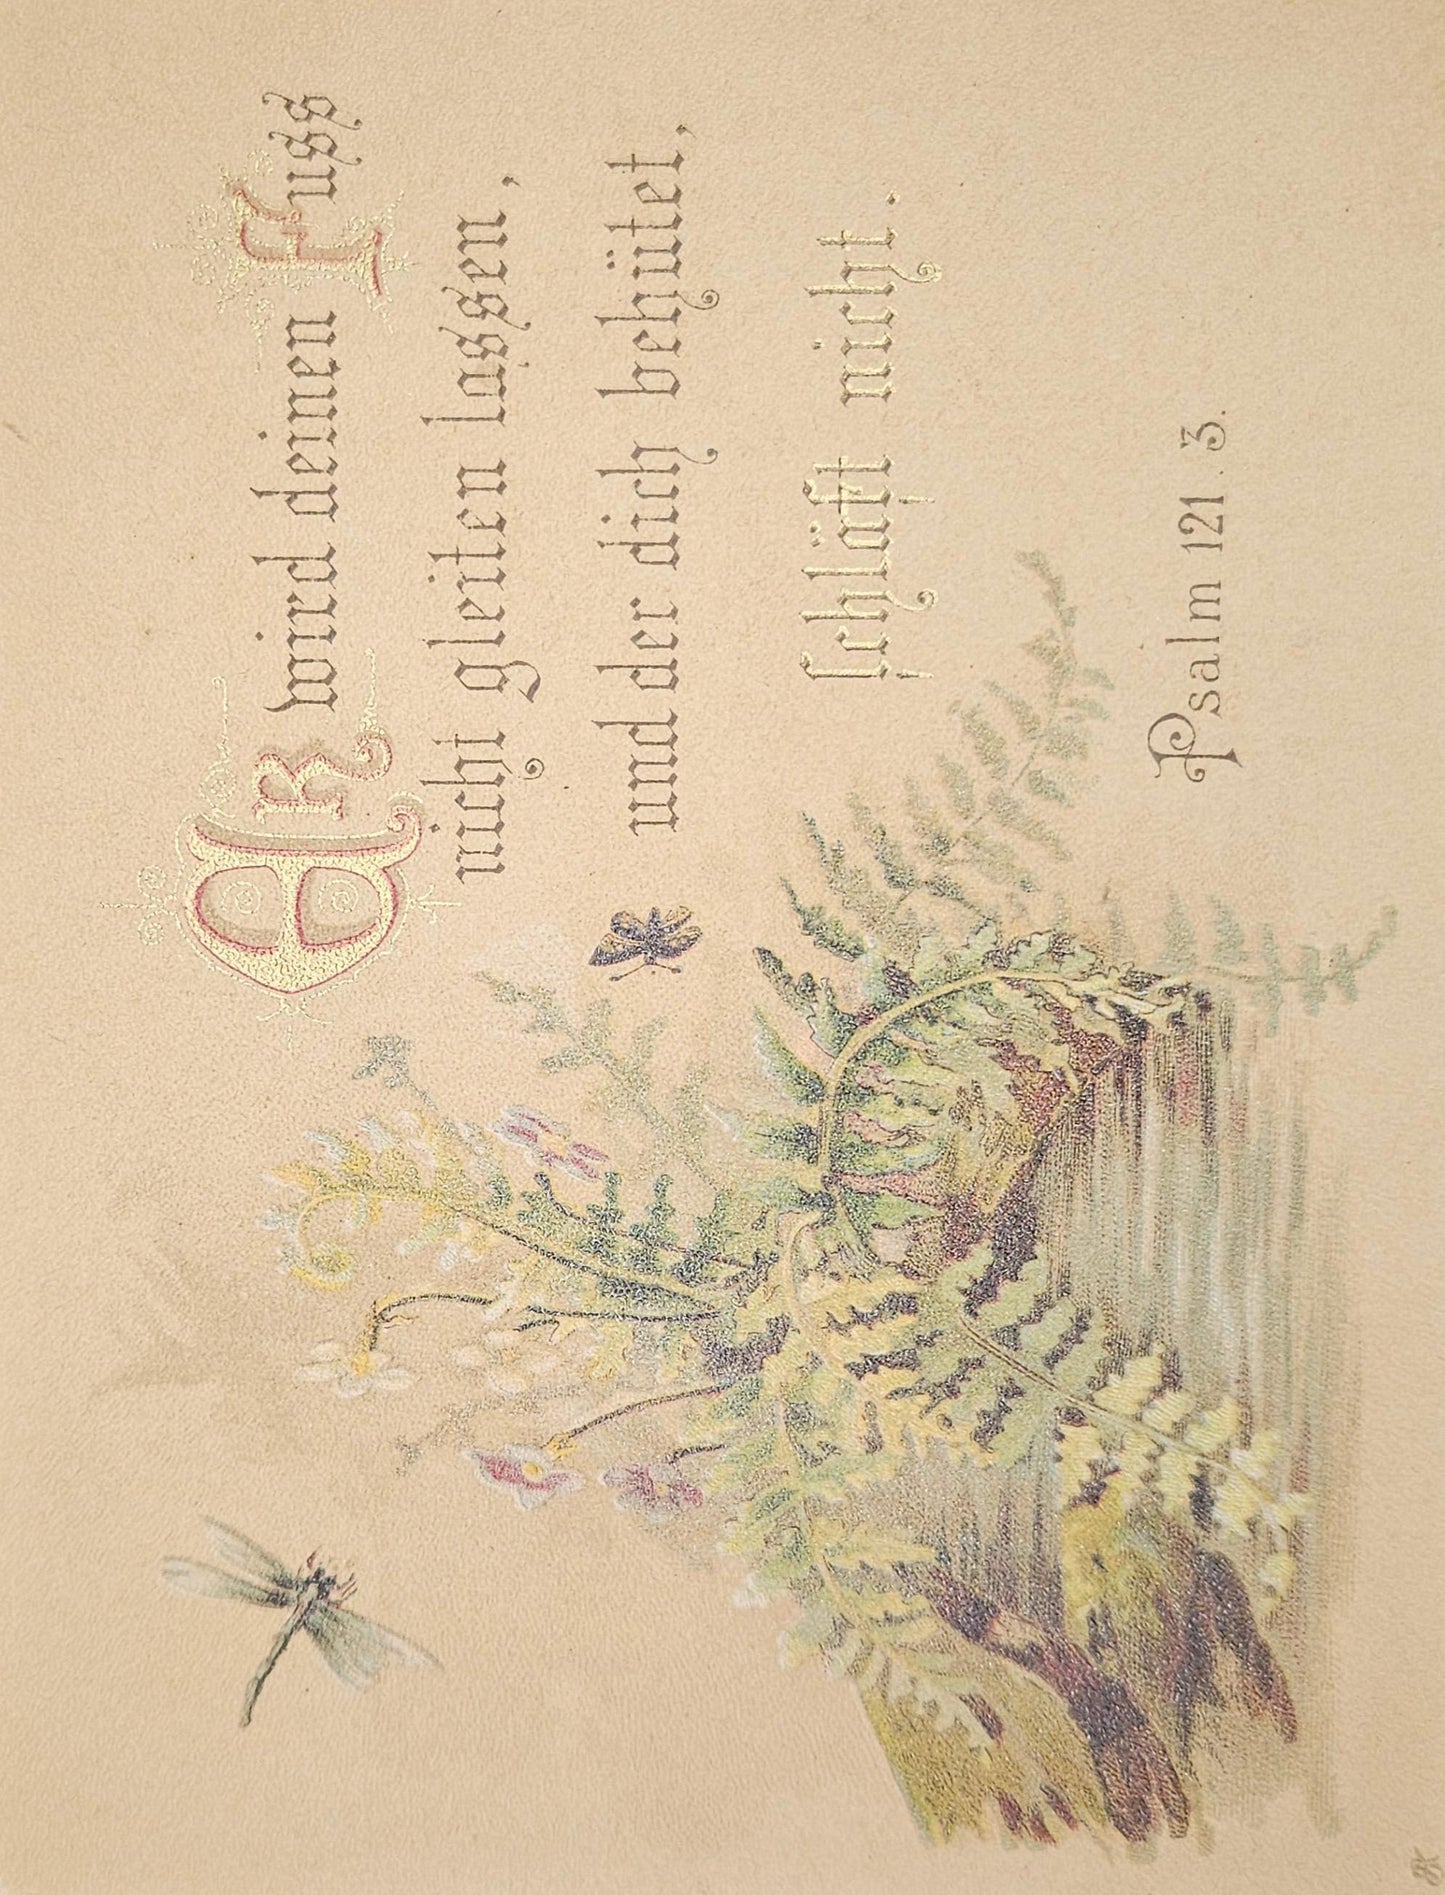 Er wird deinen Fuss
nicht gleiten lassen,
und der dich behütet,
schläft nicht.
Psalm 121. 3.